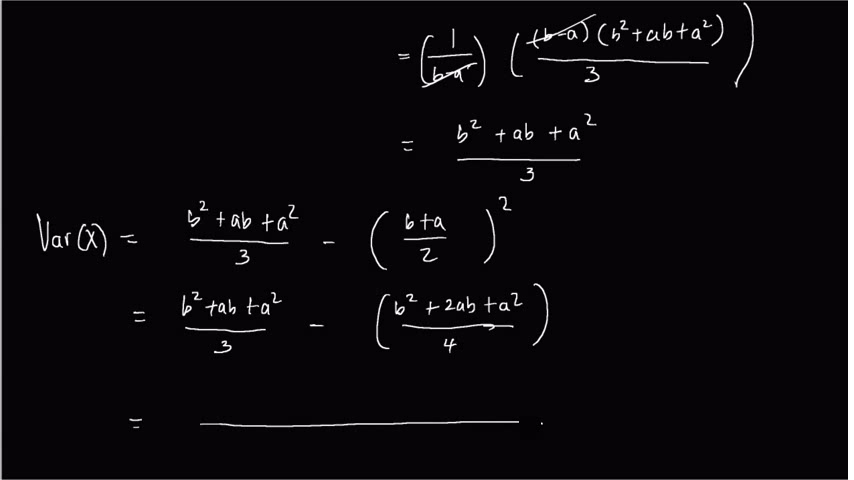 = (1/(b-a)) ((b-a)(b²+ab+a²)/3)
= (b²+ab+a²)/3
Var(X) = (b²+ab+a²)/3 - ((b+a)/2)²
= (b²+ab+a²)/3 - ((b²+2ab+a²)/4)
=